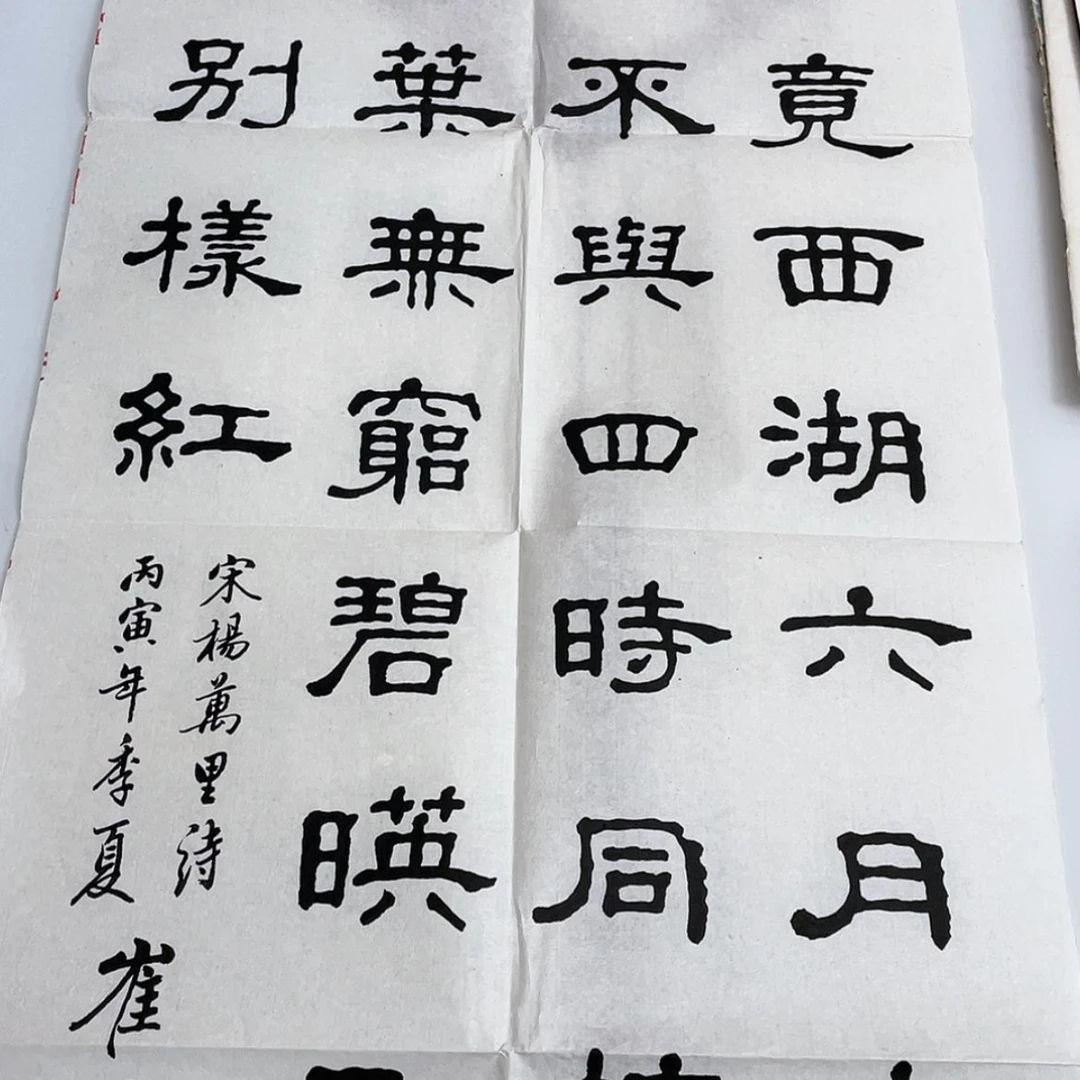 竟西湖六月
不與四時同
葉無窮碧暎
別樣紅
宋楊萬里詩
丙寅年季夏 崔